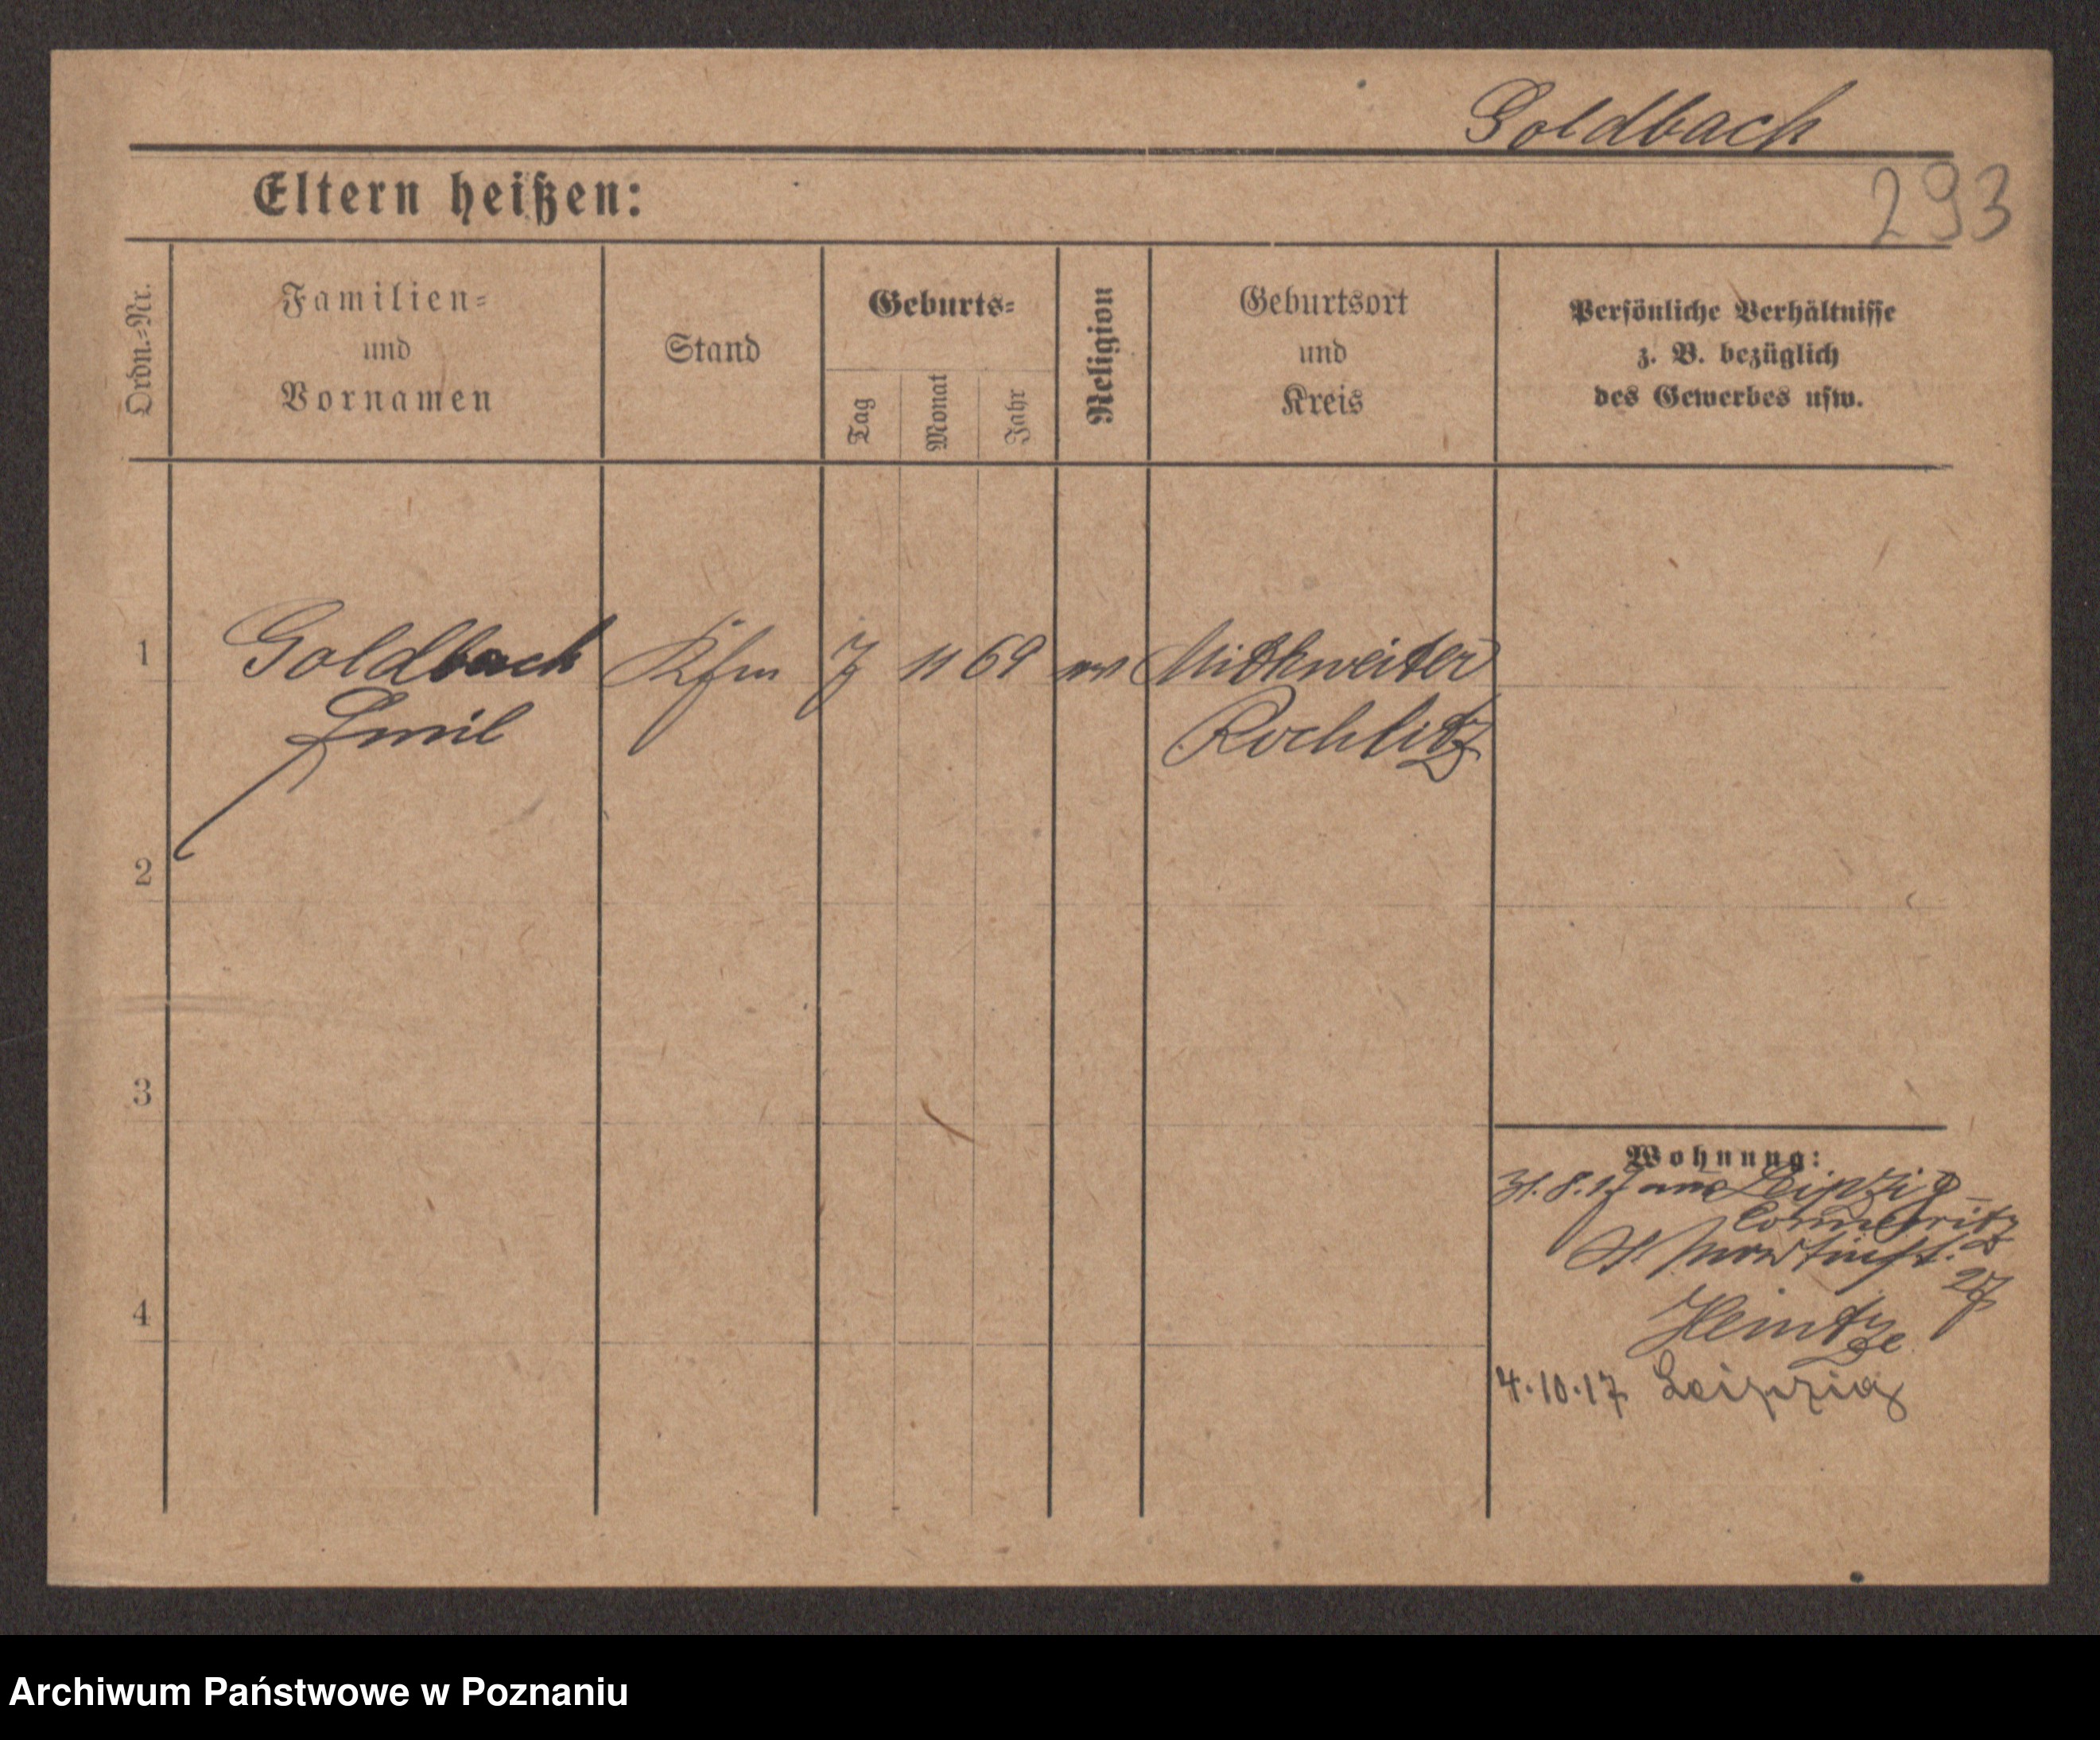 Goldbach
Eltern heißen:
293
Ordn.-Nr.
Familien-
und
Vornamen
Stand
Geburts-
Tag
Monat
Jahr
Religion
Geburtsort
und
Kreis
Persönliche Verhältnisse
z. B. bezüglich
des Gewerbes usw.
1
Goldbach Kfm 7 11 69 Mittweider
Emil Rochlitz
2
3
Wohnung:
31.8.17 aus Leipzig-
Connewitz
St Martinstr.
27
4
Heintze
4.10.17 Leipzig
Archiwum Państwowe w Poznaniu